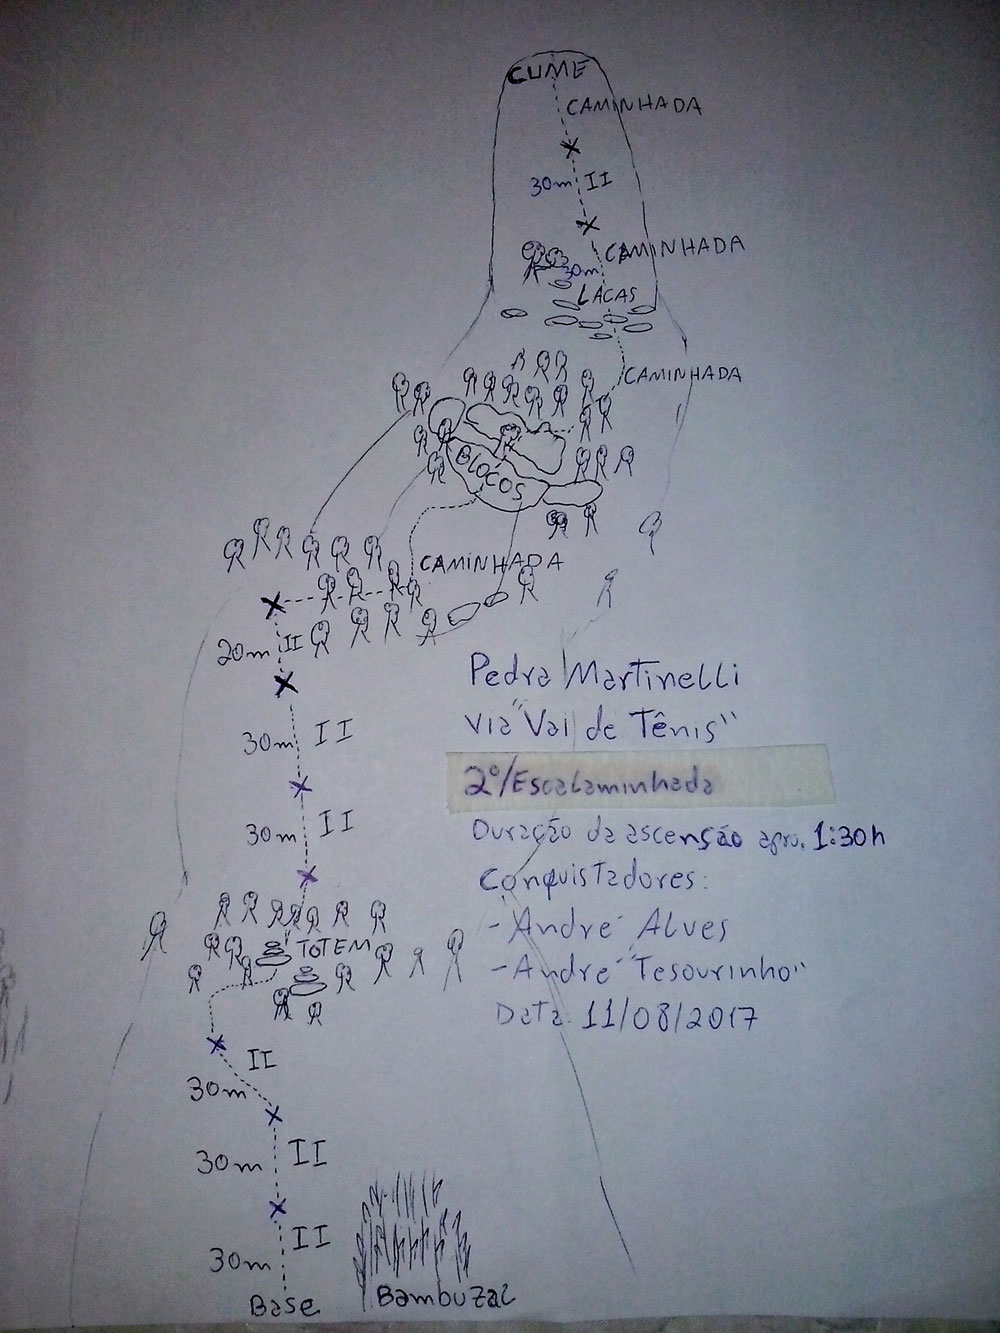 CUME
CAMINHADA
30m II
CAMINHADA
30m
LACAS
CAMINHADA
BLOCOS
CAMINHADA
20m II
30m II
30m II
TOTEM
II
30m
30m II
30m II
Base
Bambuzal
Pedra Martinelli
Via "Vai de Tênis"
2º/Escalaminhada
Duração da ascenção apro. 1:30h
Conquistadores:
- André Alves
- André "Tesourinho"
Data 11/08/2017